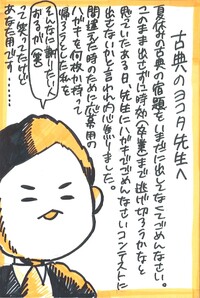 古典のヨコタ先生へ
夏休の古典の宿題をいまだに出してなくてごめんなさい。
このまま出さずに時効(卒業)まで逃げ切ろうかなと
思っていたある日、先生にハガキでごめんなさいコンテストに
出さないかと言われ内心焦りました。
間違えた時のために応募用の
ハガキを何枚か持って
帰ろうとした私を
そんなに謝りたい人
おるんか(笑)
って笑ってたけど
あなた用です……